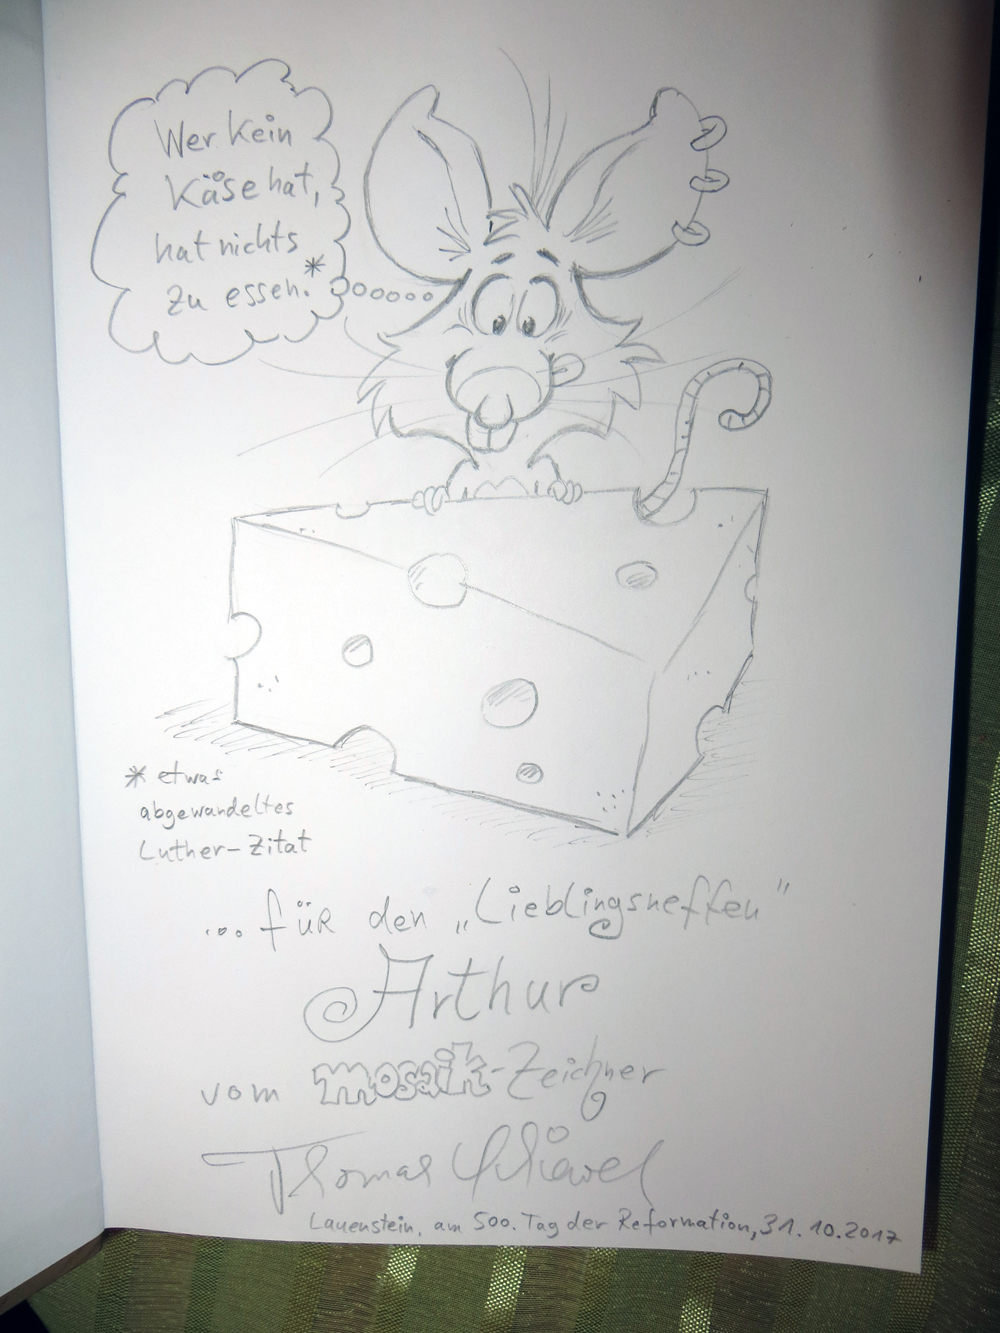 Wer kein
Käse hat,
hat nichts
zu essen.*
* etwas
abgewandeltes
Luther-Zitat
... für den „Lieblingsneffen"
Arthur
vom mosaik-Zeichner
Thomas Schiewer
Lauenstein, am 500. Tag der Reformation, 31.10.2017